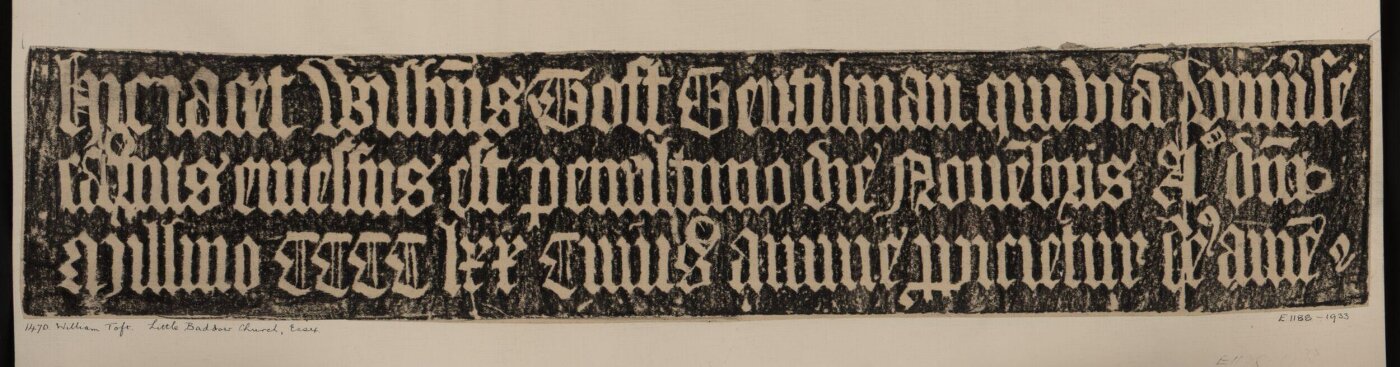 Hic iacet Willm̄s Toft Gentilman qui viā vniu'se
est penultimo die Nouēbris A° dn̄i
Millimo CCCC lxx Cuius anime ꝑpicietur de9 amē
1470. William Toft. Little Baddow Church, Essex
E.1188-1933